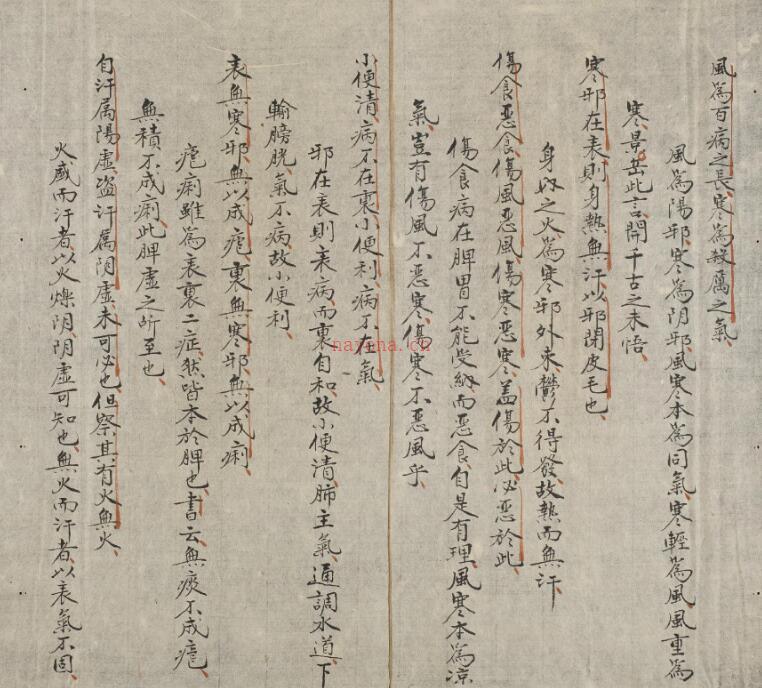 風為百病之長、寒為殺厲之氣、
風為陽邪、寒為阴邪、風寒本為同氣、寒輕為風、風重為
寒、景岳此言、開千古之未悟、
寒邪在表、則身熱無汗、以邪閉皮毛也、
身內之火為寒邪外束、鬱不得發、故熱而無汗、
傷食惡食、傷風惡風、傷寒惡寒、盖傷於此、必惡於此、
傷食病在脾胃、不能受納而惡食、自是有理、風寒本為凉
氣、豈有傷風不惡寒、傷寒不惡風乎、
小便清、病不在裏、小便利、病不在氣、
邪在表、則表病而裏自和、故小便清、肺主氣、通調水道、下
輸膀胱、氣不病、故小便利、
表無寒邪、無以成疟、裏無寒邪、無以成痢、
疟痢雖為表裏二症、然皆本於脾也、書云無痰不成瘧、
無積不成痢、此脾虛之所至也、
自汗属陽虛、盗汗属阴虛、未可必也、但察其有火無火、
火盛而汗者、以火爍阴、阴虛可知也、無火而汗者、以表氣不固、
nayona.cn